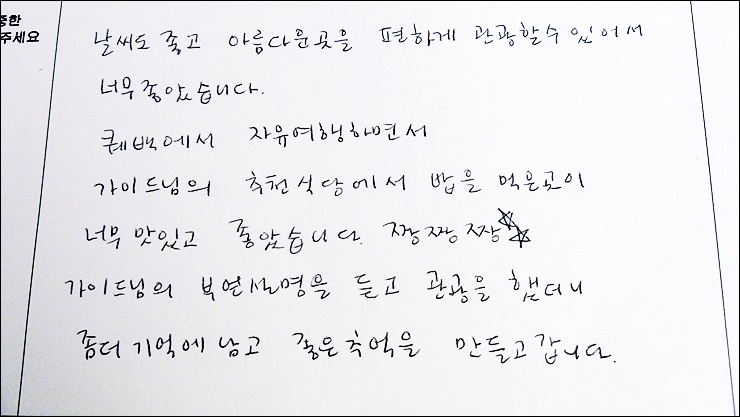 중한
주세요
날씨도 좋고 아름다운곳을 편하게 관광할수 있어서
너무좋았습니다.
퀘백에서 자유여행하면서
가이드님의 추천식당에서 밥을 먹은곳이
너무 맛있고 좋았습니다. 짱짱짱☆☆
가이드님의 부연설명을 듣고 관광을 했더니
좀더 기억에 남고 좋은추억을 만들고갑니다.